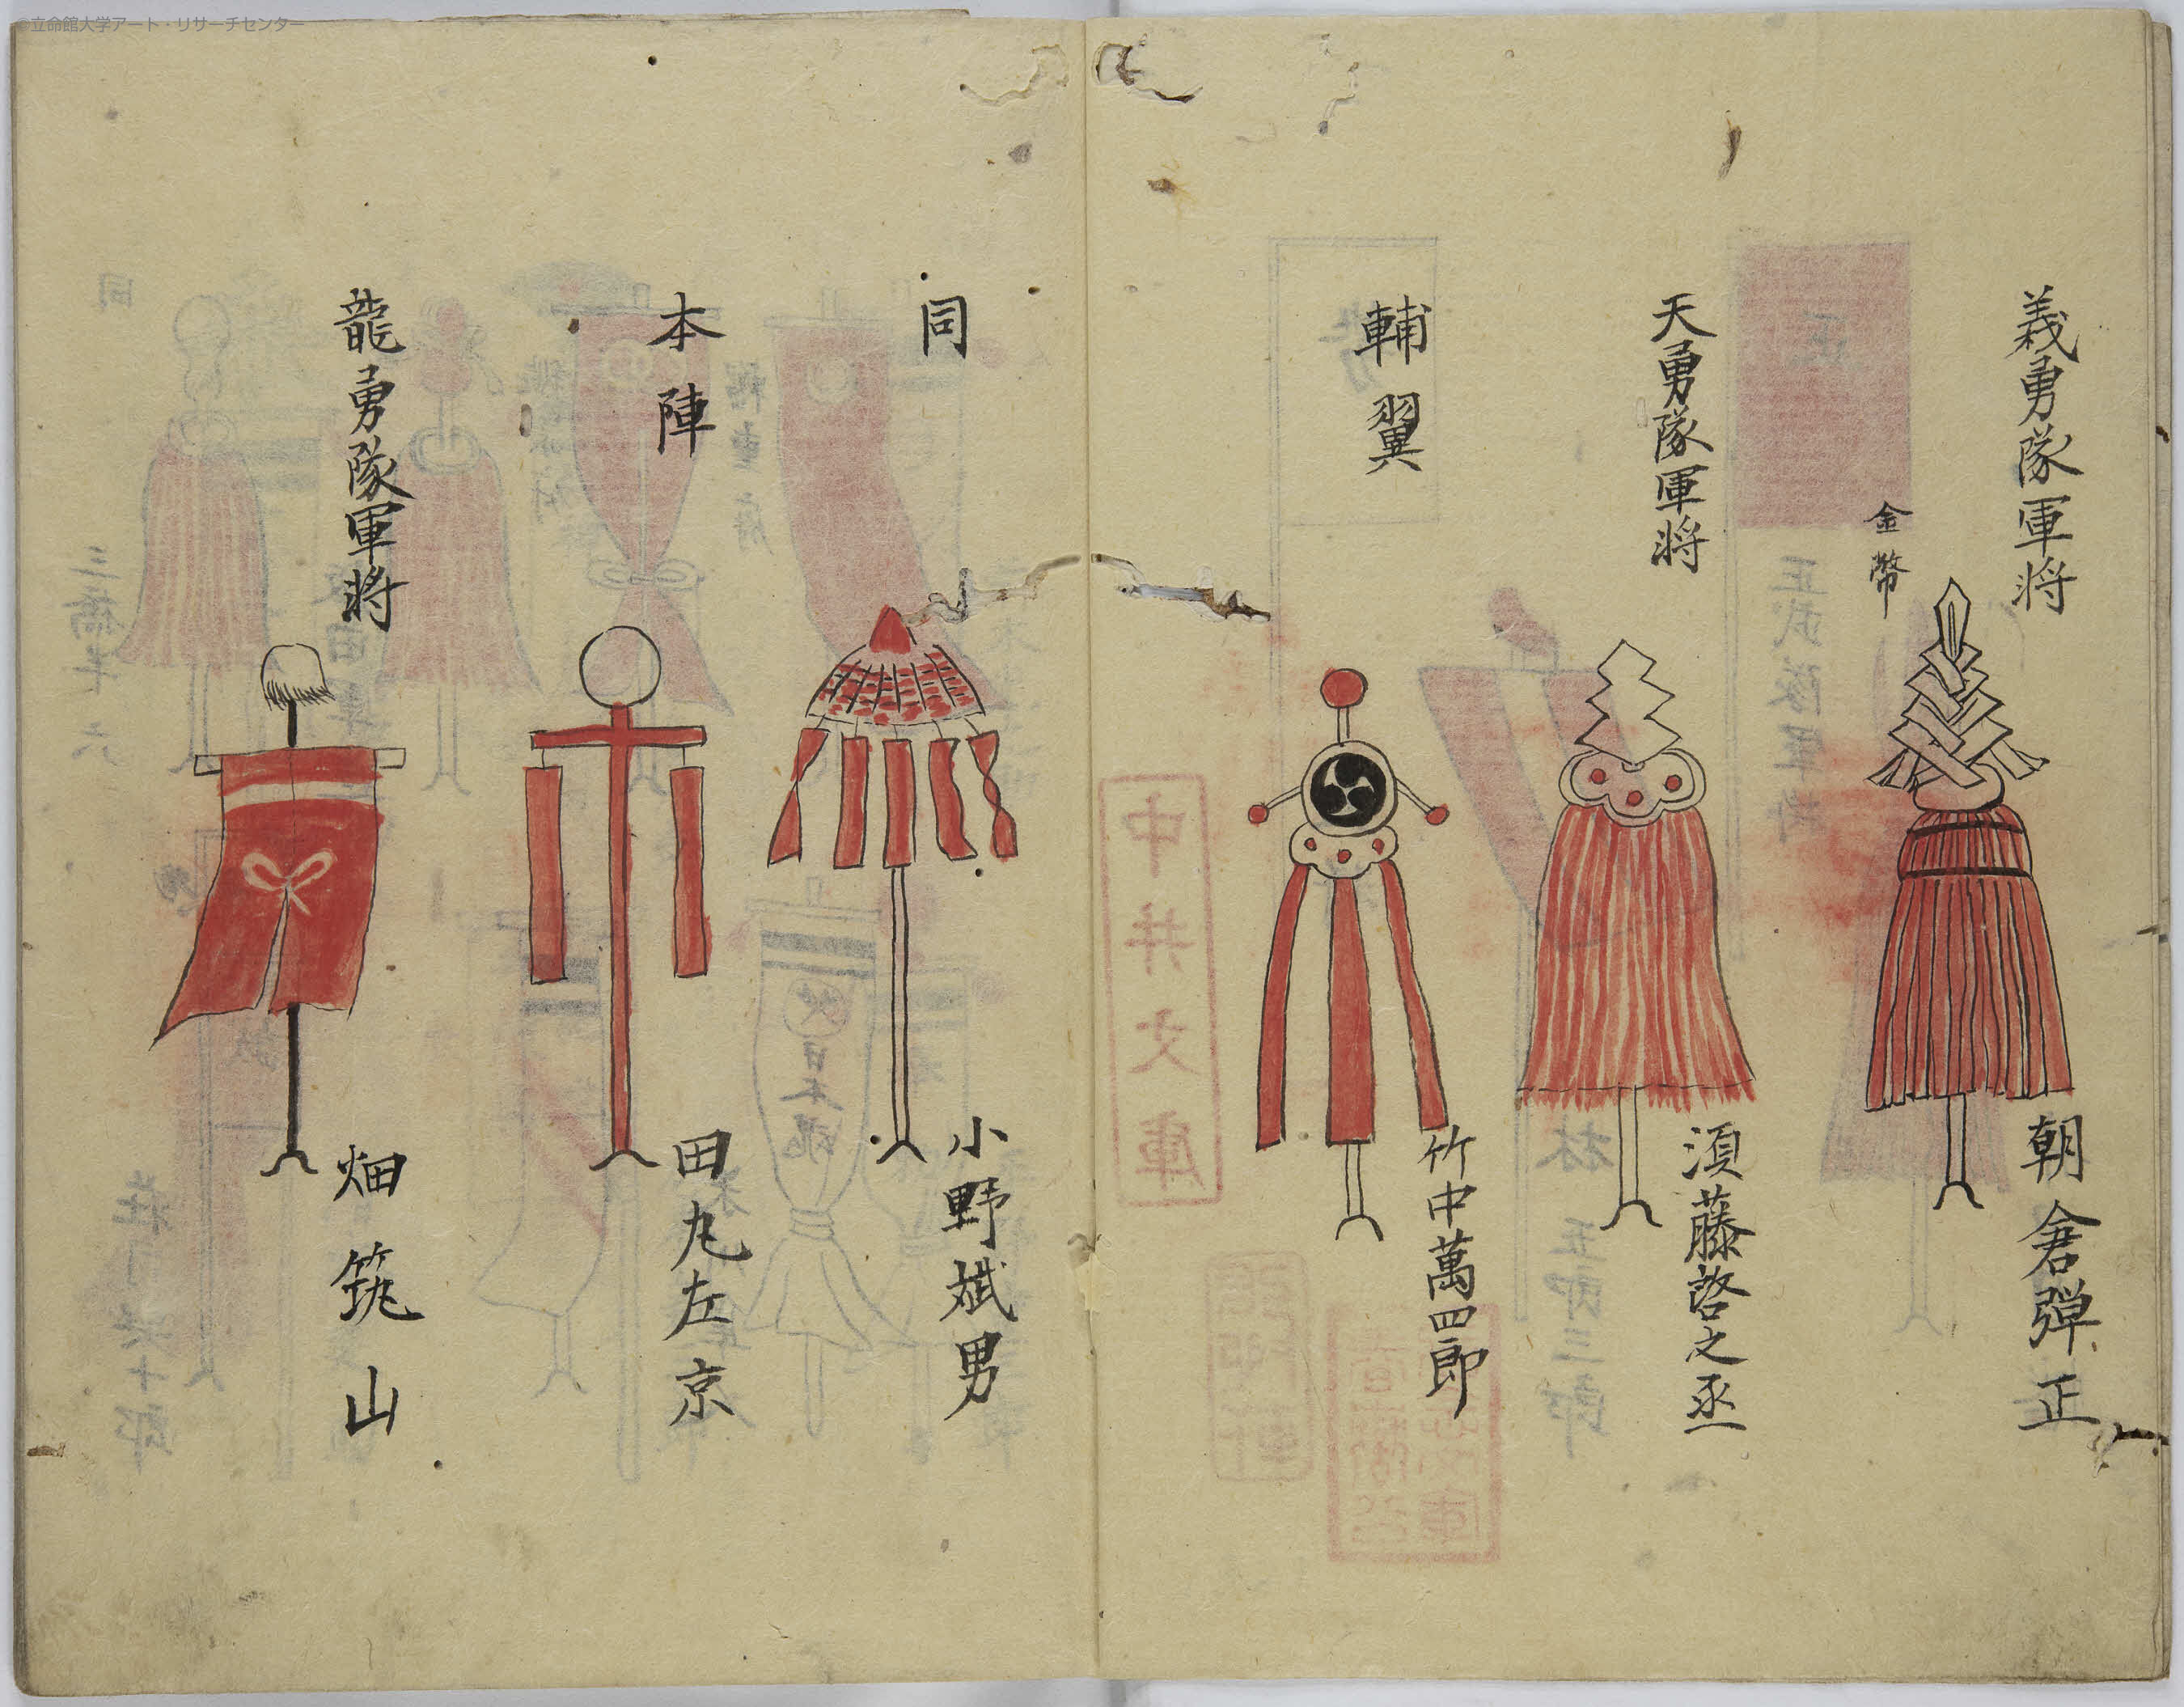 義勇隊軍将
金幣
朝倉弾正
天勇隊軍将
須藤啓之丞
輔翼
竹中萬四郎
中井文庫
同
小野斌男
本陣
田丸左京
龍勇隊軍将
畑筑山
©立命館大学アート・リサーチセンター